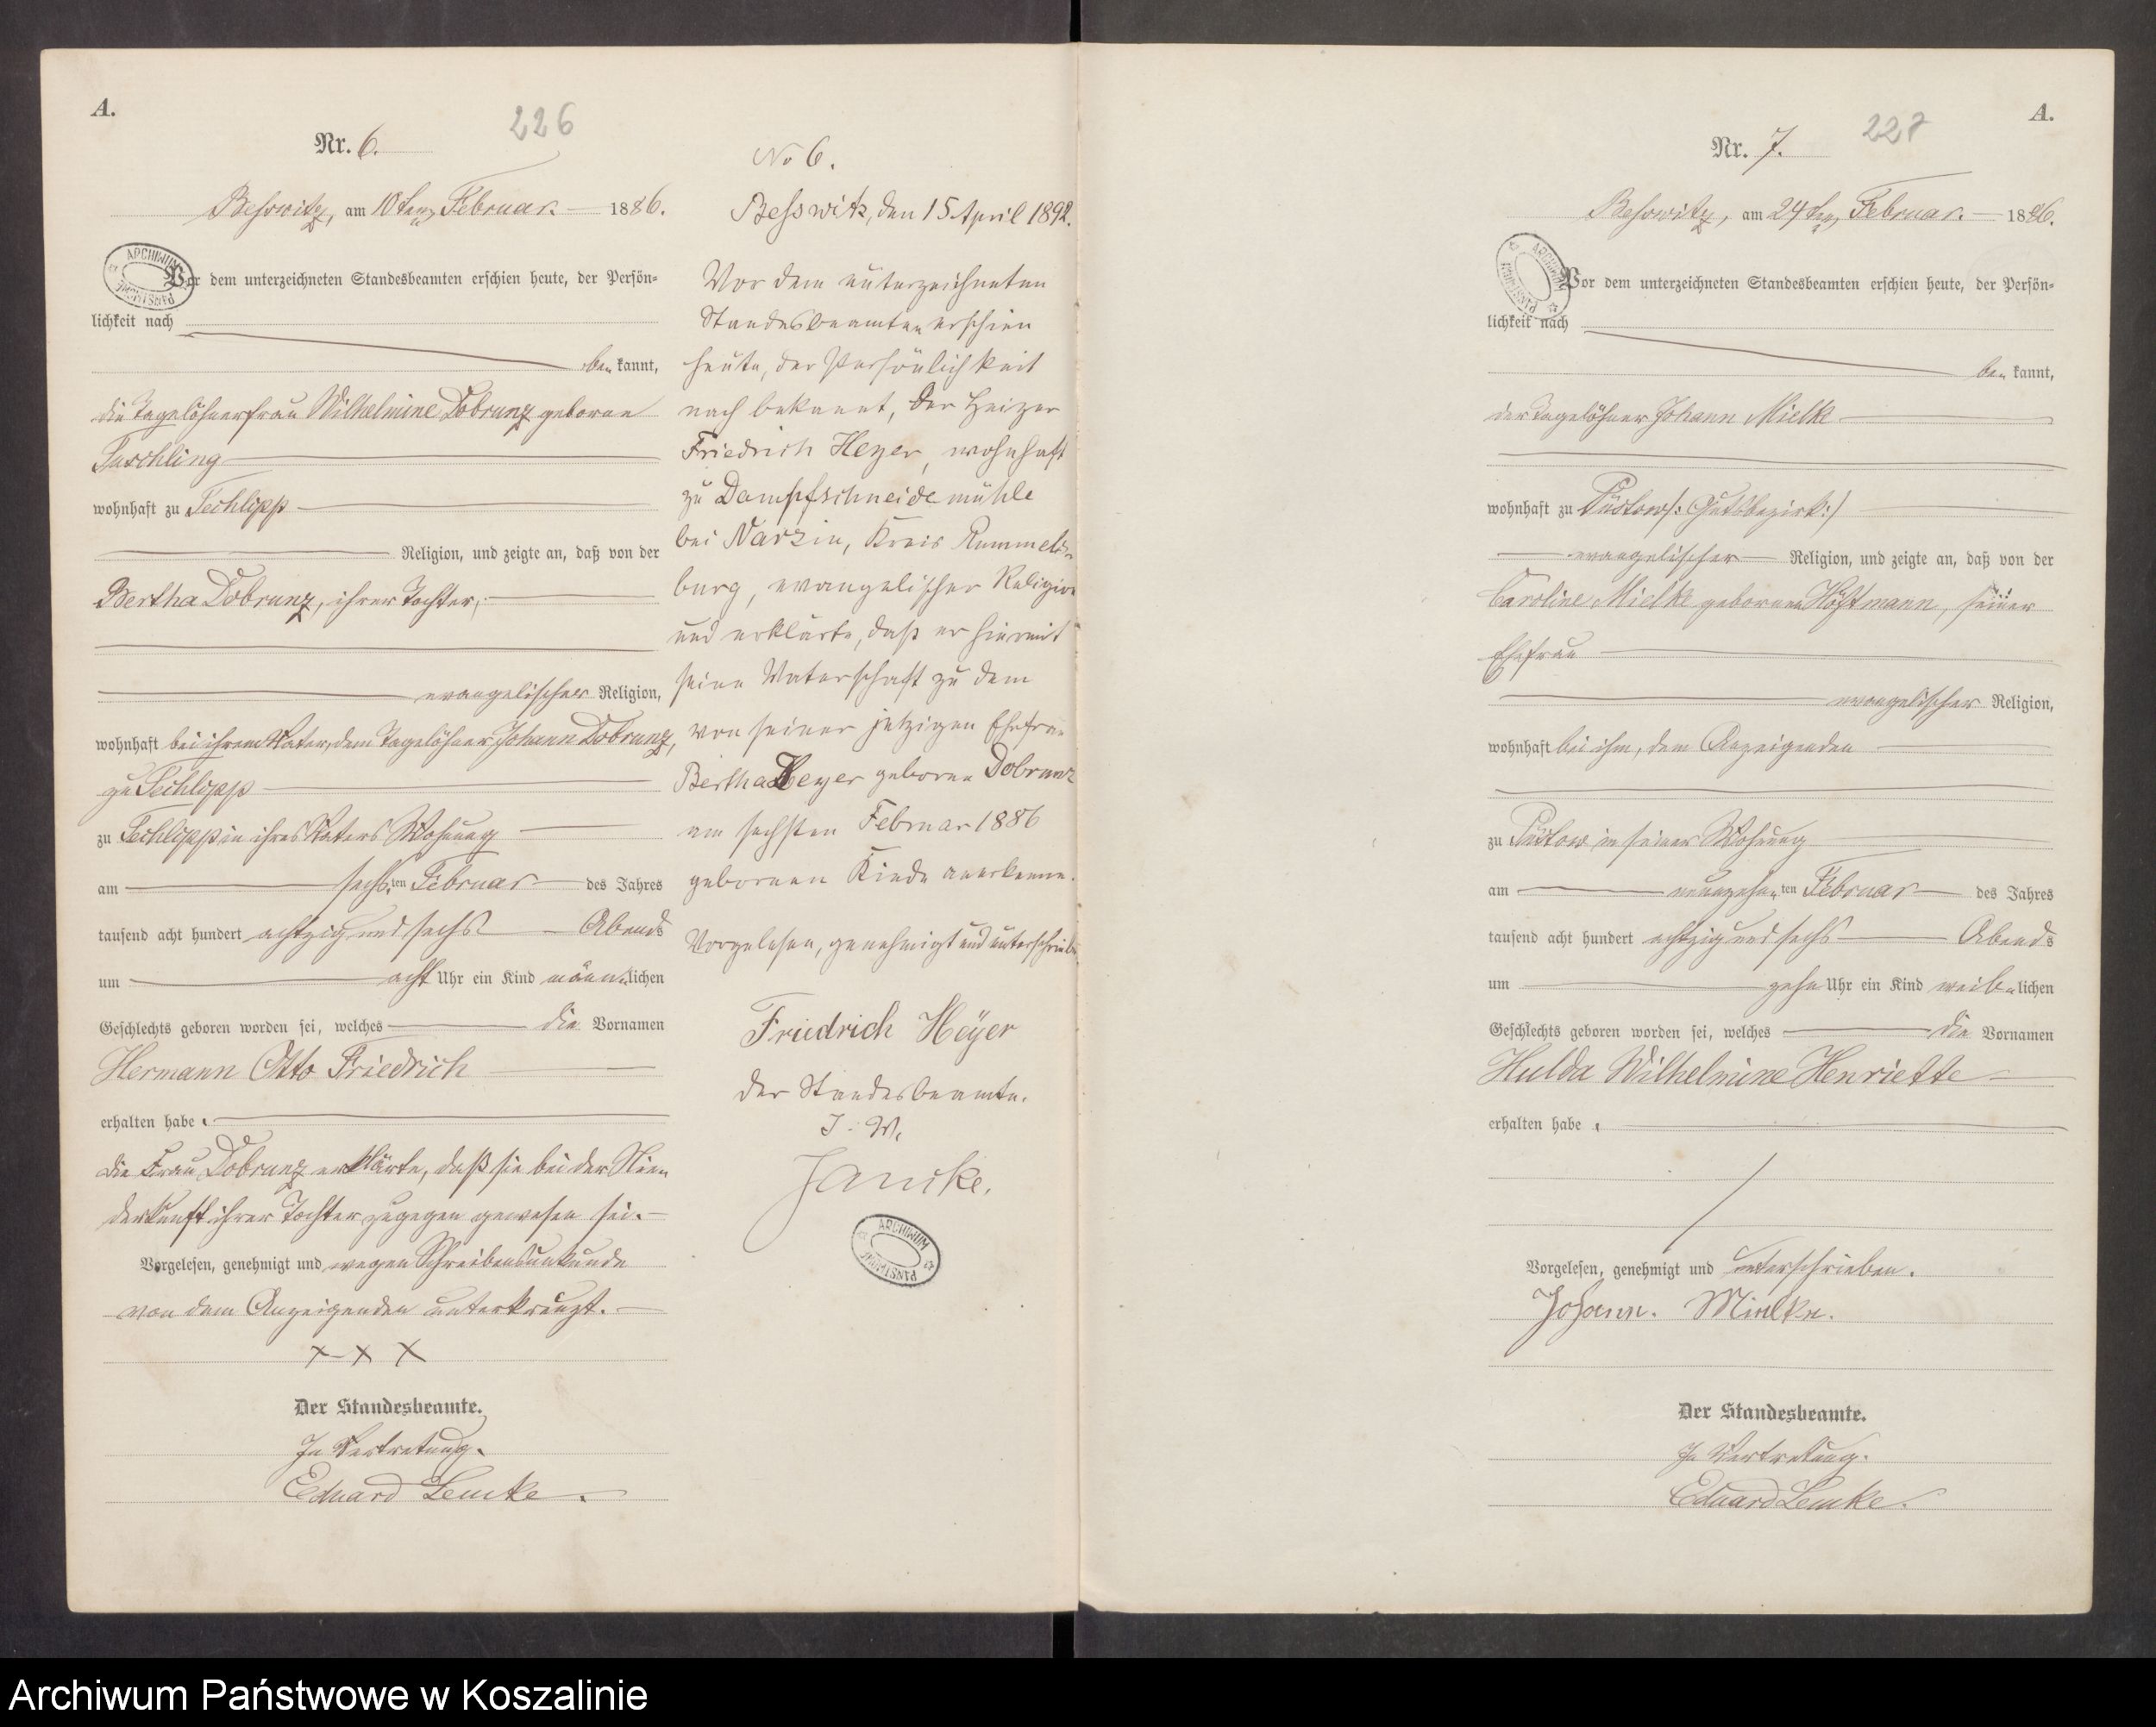 A.
226
Nr. 6.
Besswitz, am 10ten Februar 1886.
Vor dem unterzeichneten Standesbeamten erschien heute, der Persön=
lichkeit nach
bekannt,
die Tagelöhnerfrau Wilhelmine Dobrunz geborene
Taschling
wohnhaft zu Techlipp
Religion, und zeigte an, daß von der
Bertha Dobrunz, ihrer Tochter,
evangelischer Religion,
wohnhaft bei ihrem Vater, dem Tagelöhner Johann Dobrunz,
zu Techlipp
zu Techlipp in ihres Vaters Wohnung
am sechsten Februar des Jahres
tausend acht hundert achtzig und sechs Abends
um acht Uhr ein Kind männlichen
Geschlechts geboren worden sei, welches die Vornamen
Hermann Otto Friedrich
erhalten habe.
Die Frau Dobrunz erklärte, daß sie bei der Nie=
derkunft ihrer Tochter zugegen gewesen sei.
Vorgelesen, genehmigt und wegen Schreibensunkunde
von dem Anzeigenden unterkreuzt.
x x x
Der Standesbeamte.
In Vertretung.
Eduard Lemke.
No 6.
Besswitz, den 15 April 1892.
Vor dem unterzeichneten
Standesbeamten erschien
heute, der Persönlichkeit
nach bekannt, der Heizer
Friedrich Heyer, wohnhaft
zu Dampfschneidemühle
bei Varzin, Kreis Rummels=
burg, evangelischer Religion
und erklärte, daß er hiermit
seine Vaterschaft zu dem
von seiner jetzigen Ehefrau
Bertha Heyer geborene Dobrunz
am sechsten Februar 1886
geborenen Kinde anerkenne.
Vorgelesen, genehmigt und unterschrieben
Friedrich Heÿer
Der Standesbeamte.
I. V.
Janike.
ARCHIWUM PAŃSTWOWE
A.
227
Nr. 7.
Besswitz, am 24ten Februar 1886.
Vor dem unterzeichneten Standesbeamten erschien heute, der Persön=
lichkeit nach
bekannt,
der Tagelöhner Johann Mielke
wohnhaft zu Püstow /: Gutsbezirk :/
evangelischer Religion, und zeigte an, daß von der
Caroline Mielke geborenen Höftmann, seiner
Ehefrau
evangelischer Religion,
wohnhaft bei ihm, dem Anzeigenden
zu Püstow in seiner Wohnung
am neunzehnten Februar des Jahres
tausend acht hundert achtzig und sechs Abends
um zehn Uhr ein Kind weiblichen
Geschlechts geboren worden sei, welches die Vornamen
Hulda Wilhelmine Henriette
erhalten habe.
Vorgelesen, genehmigt und unterschrieben.
Johann. Mielke.
Der Standesbeamte.
In Vertretung.
Eduard Lemke.
Archiwum Państwowe w Koszalinie